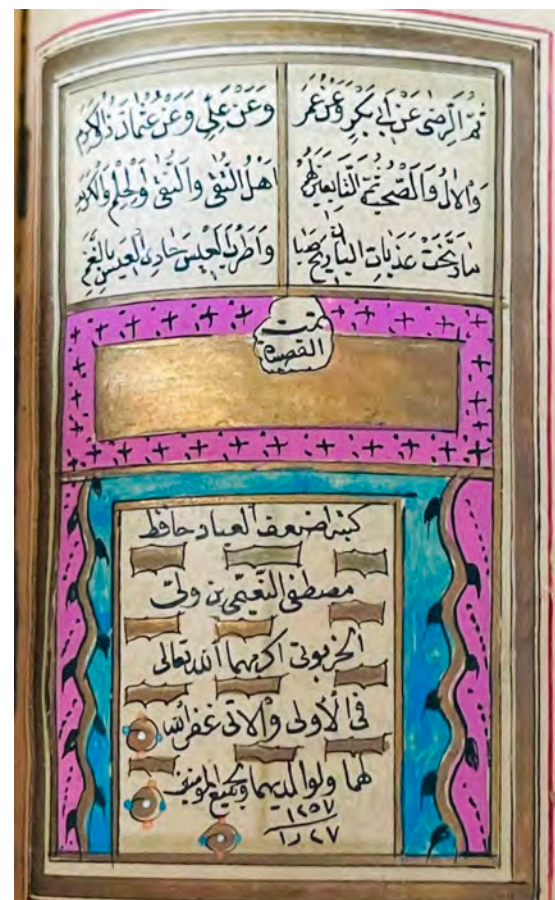 ثُمَّ الرِّضَى عَنْ أَبِي بَكْرٍ وَعَنْ عُمَرَ وَعَنْ عَلِيٍّ وَعَنْ عُثْمَانَ ذِي الْكَرَمِ
وَالْآلِ وَالصَّحْبِ ثُمَّ التَّابِعِينَ لَهُمْ اَهْلُ التُّقَى وَالنُّقَى وَالْحِلْمِ وَالْكَرَمِ
مَا رَنَّحَتْ عَذَبَاتِ الْبَانِ رِيحُ صَبَا وَاَطْرَبَ الْعِيسَ حَادِي الْعِيسِ بِالنَّغَمِ
تمت
القصيده
كتبه اضعف العباد حافظ
مصطفى النعيمي بن ولي
الخربوتي اكرمهما الله تعالى
في الأولى والآتي غفر الله
لهما ولوالديهما ولجميع المؤمنين
١٢٥٧
٢٧ را